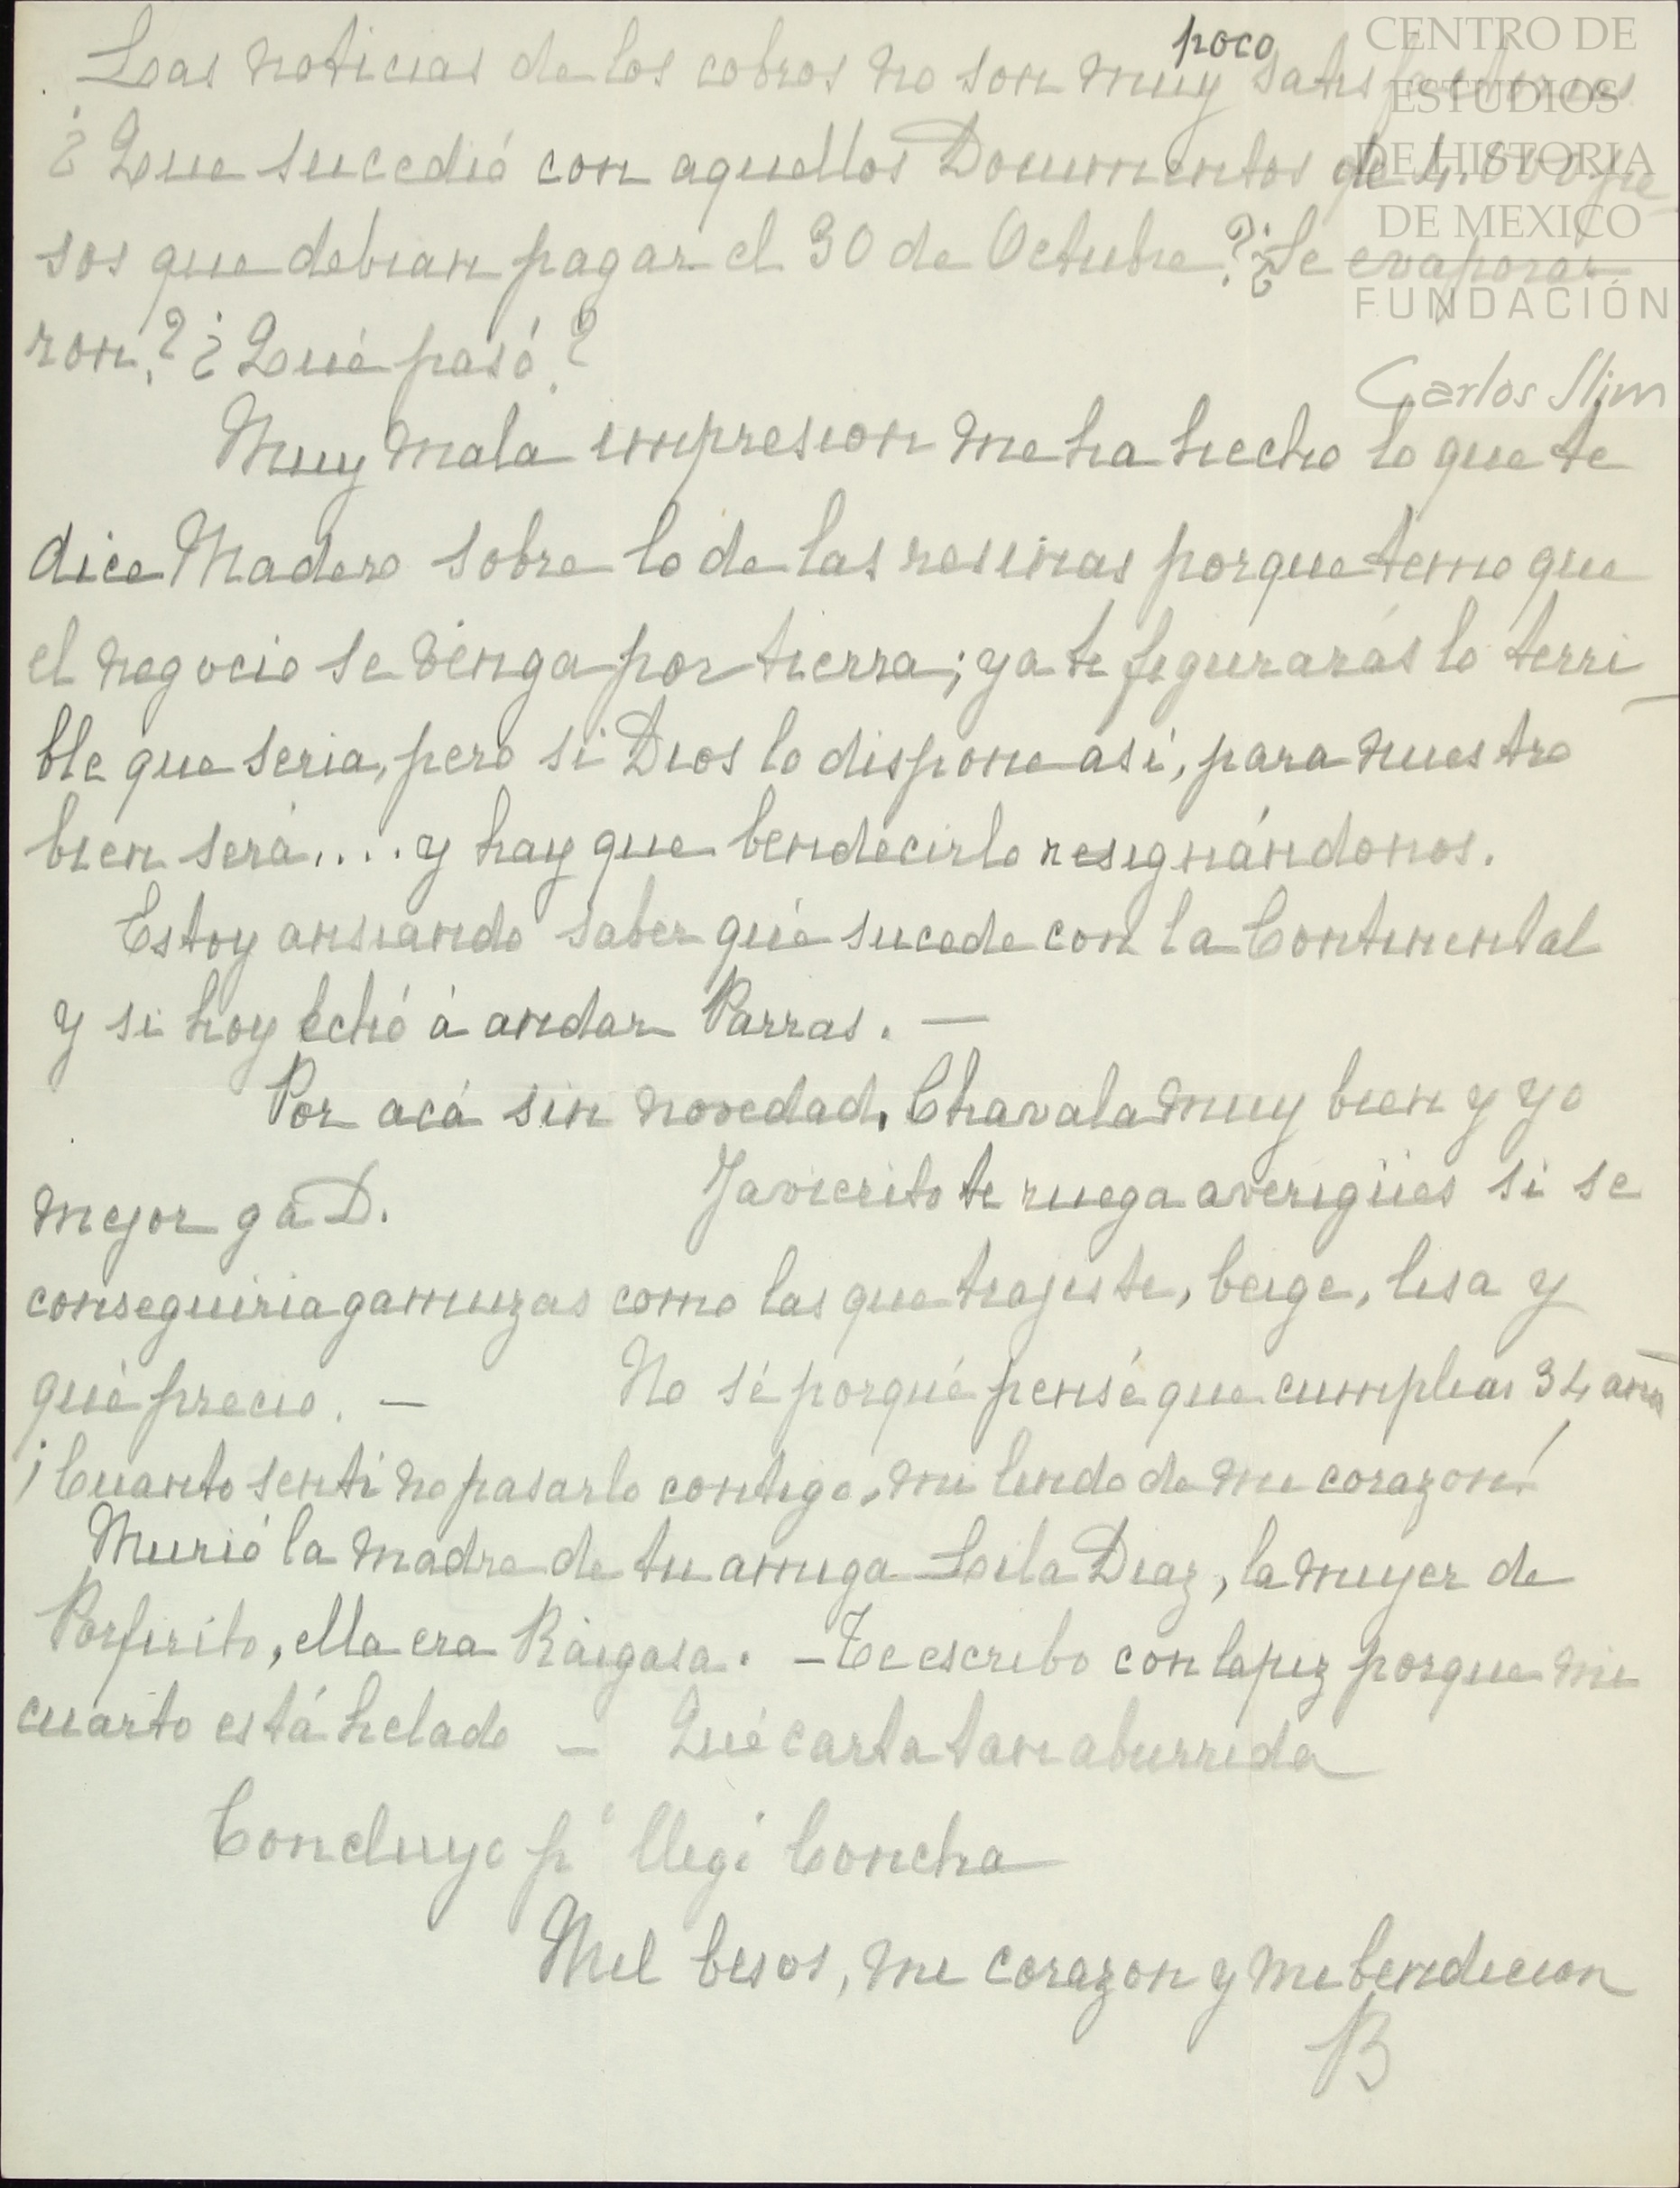 poco
Las noticias de los cobros no son muy satisfactorias
¿Que sucedió con aquellos Documentos de 4.000 pe-
sos que debian pagar el 30 de Octubre? ¿Se evapora-
ron? ¿Qué pasó?
Muy mala impresion me ha hecho lo que te
dice Madero sobre lo de las resinas porque temo que
el negocio se venga por tierra; ya te figurarás lo terri-
ble que seria, pero si Dios lo dispone asi, para nuestro
bien será.... y hay que bendecirlo resignándonos.
Estoy ansiando saber qué sucede con la Continental
y si hoy echó á andar Parras. —
Por acá sin novedad. Chavala muy bien y yo
mejor g a D. Javiercito te ruega averigües si se
conseguiria gamuzas como las que trajiste, beige, lisa y
qué precio. — No sé porqué pensé que cumplias 34 años
¡Cuanto senti no pasarlo contigo, mi lindo de mi corazon!
Murió la madre de tu amiga Lila Diaz, la mujer de
Porfirito, ella era Raigosa. — Te escribo con lapiz porque mi
cuarto está helado — Qué carta tan aburrida
Concluyo p' llegó Concha
Mil besos, mi corazon y mi bendicion
B
CENTRO DE
ESTUDIOS
DE HISTORIA
DE MEXICO
FUNDACIÓN
Carlos Slim